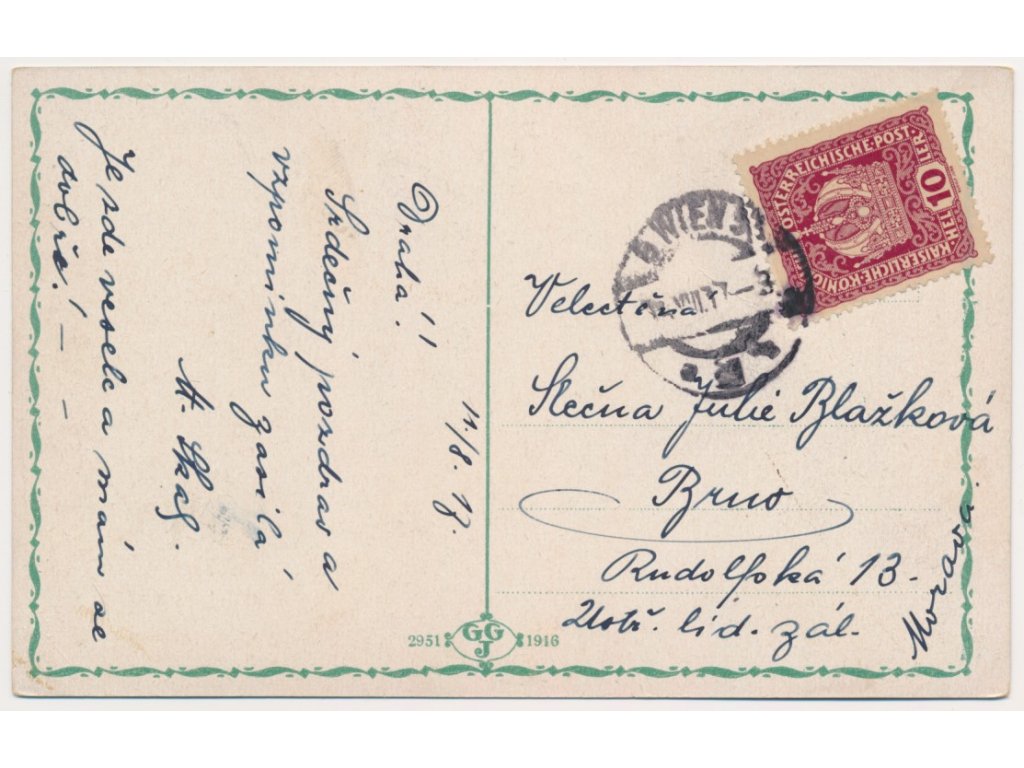 Drahá!
14/8. 17
Srdečný pozdrav a
vzpomínku zasílá
A.
Je zde vesele a mám se
dobře! — —
2951 GGJ 1916
WIEN
VIII.17
ÖSTERREICHISCHE·POST·
KAISERLICHE·KÖNIG
10
HEL LER
Velectěná
Slečna Julie Blažková
Brno
Rudolfská 13.
lid. zál.
Morava